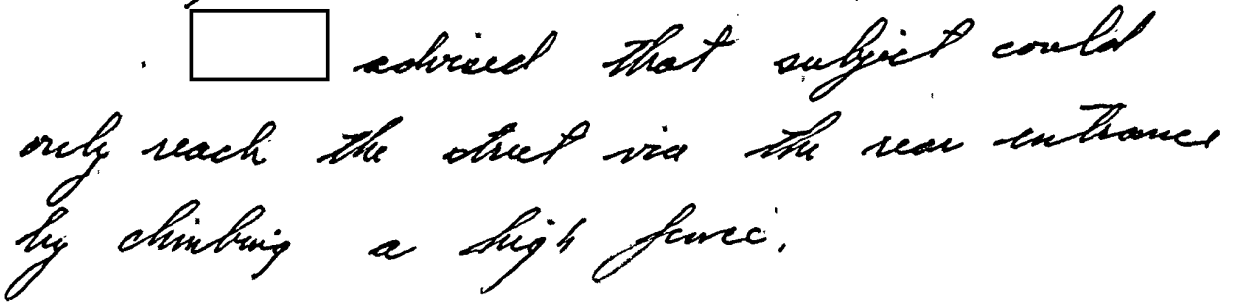 advised that subject could
only reach the street via the rear entrance
by climbing a high fence.